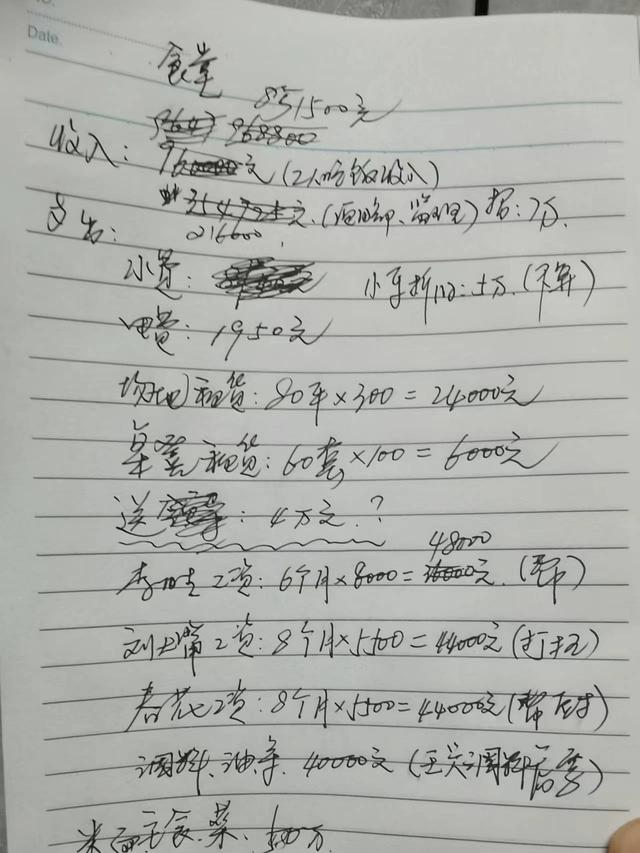 Date.
食堂
851500元
968800
收入: 960000元 (工人吃饭收入)
354725元. (项目部、监理) 招: 7万.
支出: 216000
水费: 小车折旧: 5万. (不算)
电费: 1950元
场地租赁: 80平×300=24000元
桌凳租赁: 60套×100=6000元
送: 4万元.?
48000
工资: 6个月×8000=元. (帮)
刘大嘴工资: 8个月×5500=44000元 (打杂)
春花工资: 8个月×5500=44000元 (帮厨)
调料、油条. 40000元 (王关调料)
米面主食.菜.